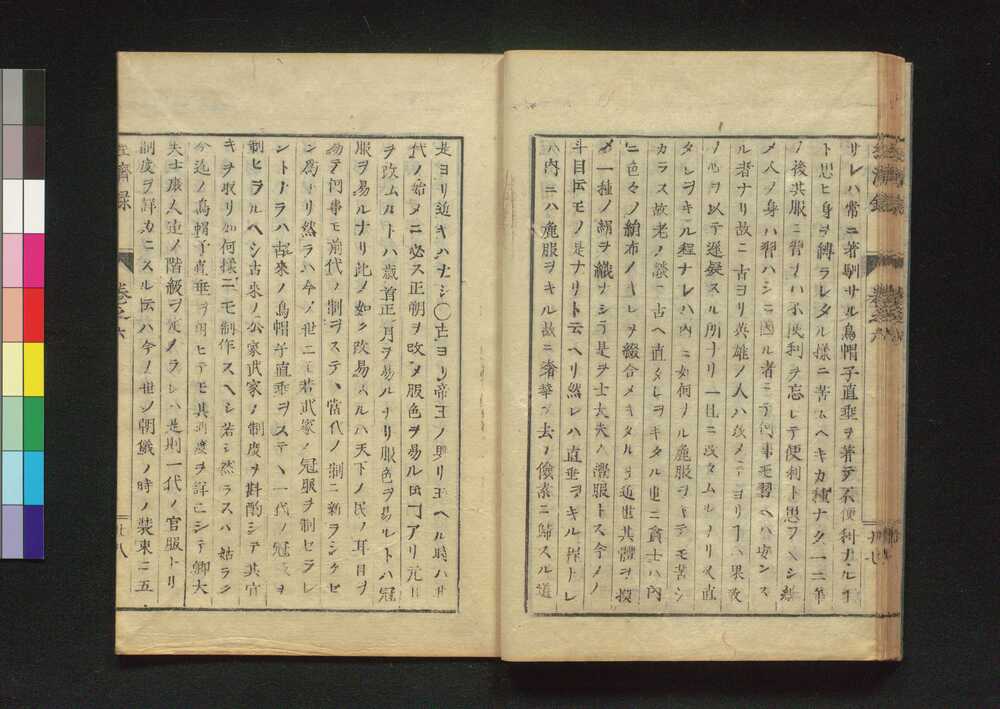 サレハ常ニ著馴サル烏帽子直垂ヲ著テ不便利ナル
ト思ヒ身ヲ縛ラレタル様ニ苦ムヘキカ種ナタ一二年
ノ後其服ニ習ナハ不便利ヲ忘レテ便利ト思フヘシ
メ人ノ身ハ習ハシニ因ル者ニテ何事モ習ヘハ安ンス
ル者ナリ故ニ古ヨリ英雄ノ人ハ改メ
ノ心ヲ以テ遅疑スル所ナリ一旦ニ改タムルノリ又直
タレヲキル程ナレハ内ニ如何ナル麁服ヲキテモ苦シ
カラス故老ノ談ニ古ヘ直タレヲキタル世ニ貧士ハ内
ニ色々ノ絹布ノ レヲ綴合メキタルヲ近世其體ヲ摸
メ一種ノ絹ヲ織ナシテ是ヲ士大夫ノ禮服トス今ノノ
斗目ト云モノ是ナリト云ヘリ然レハ直垂ヲキル程ナレ
ハ内ニハ麁服ヲキル故ニ奢華ヲ去ノ儉素ニ歸スル道
是ヨリ近キハナシ〇古ヨリ帝王ノ興リ玉ヘル時ハ其
代ノ始メニ必ス正朔ヲ改メ服色ヲ易ル ヿアリ元日
ヲ改ムルトハ歳首正月ヲ易ルナリ服色ヲ易ルトハ冠
服ヲ易ルナリ此ノ如ク改易スルハ天下ノ民ノ耳目ヲ
易テ何事モ前代ノ制ヲステ、當代ノ制ニ新ヲシクセ
ン為ナリ然ラハ今ノ世ニモ若武家ノ冠服ヲ制セラレ
ントナラハ古来ノ烏帽子直垂ヲステ、一代ノ冠服ヲ
制セラルヘシ古来ノ公家武家ノ制度ヲ斟酌シテ其宜
キヲ取リ如何様ニモ制作スヘシ若シ然ラスハ姑ラク
今迄ノ烏帽子直垂ヲ用ヒテモ其制度ヲ詳ニシテ卿大
夫士庶人迄ノ階級ヲ定メラレハ是則一代ノ官服ナリ
制度ヲ詳カニスル伝ハ今ノ世ノ朝儀ノ時ノ装束ニ五
濟録
巻之六
廿八